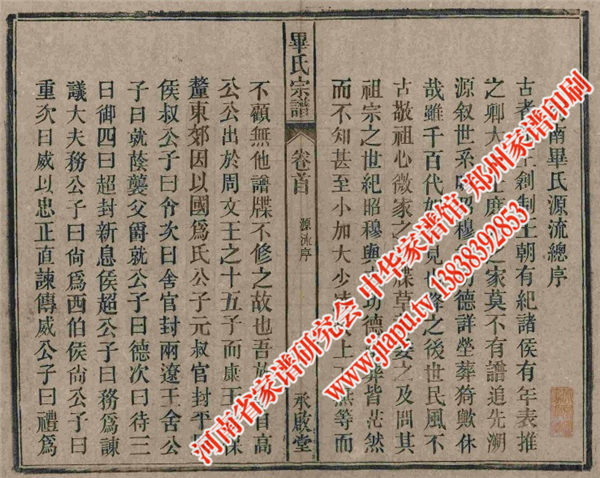 南畢氏源流總序
古者王創制王朝有紀諸侯有年表推
之卿大士庶之家莫不有譜追先溯
源叙世系昭穆功德詳塋葬猗歟休
哉雖千百代如見降之後世民風不
古敬祖心微家之牒草委之及問其
祖宗之世紀昭穆與功德葬皆茫然
而不知甚至小加大少上無等而
畢氏宗譜
卷首
源流序
永啟堂
不顧無他譜牒不修之故也吾族自高
公公出於周文王之十五子而康王保
釐東郊因以國爲氏公子元叔官封平
侯叔公子曰兮次曰舍官封兩遼王舍公
子曰就蔭襲父爵就公子曰德次曰待三
曰御四曰超封新息侯超公子曰務爲諫
議大夫務公子曰尚爲西伯侯尚公子曰
重次曰威以忠正直諫傳威公子曰禮爲
河南省家谱研究会 中华家谱馆 郑州家谱印刷
www.jiapu.tv 13838392853